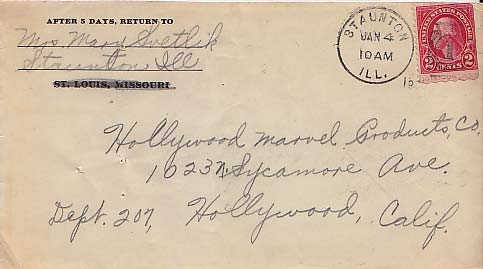 AFTER 5 DAYS, RETURN TO
Mrs Mary Svetlik
Staunton Ill
ST. LOUIS, MISSOURI
STAUNTON
JAN 4
10AM
ILL.
UNITED STATES POSTAGE
2 CENTS 2
Hollywood Marvel Products, Co.
1023 N Sycamore Ave.
Dept. 207, Hollywood, Calif.